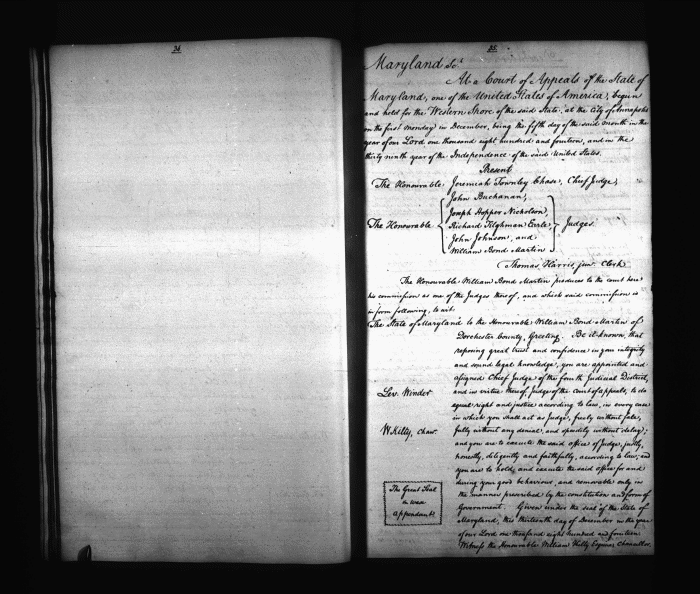 34.
35.
Maryland Sc.t
At a Court of Appeals of the State of
Maryland, one of the United States of America, begun
and held for the Western Shore of the said State, at the city of Annapolis
on the first Monday in December, being the fifth day of the said month in the
year of our Lord one thousand eight hundred and fourteen, and in the
thirty ninth year of the Independence of the said United States.
Present
The Honourable Jeremiah Townley Chase, Chief Judge,
John Buchanan,
Joseph Hopper Nicholson,
The Honourable Richard Tilghman Earle, Judges.
John Johnson, and
William Bond Martin
Thomas Harris, jun. Clerk
The Honourable William Bond Martin produces to the court here
his commission as one of the Judges thereof, and which said commission is
in form following, to wit.
The State of Maryland to the Honourable William Bond Martin of
Dorchester County, Greeting. Be it known, that
reposing great trust and confidence in your integrity
and sound legal knowledge, you are appointed and
assigned Chief Judge of the fourth Judicial District,
Lev. Winder and in virtue thereof, Judge of the Court of appeals, to do
equal right and justice according to law, in every case
in which you shall act as Judge, freely without sale,
W. Kilty, Chan. fully without any denial, and speedily without delay;
and you are to execute the said office of Judge, justly,
honestly, diligently and faithfully, according to law; and
you are to hold, and execute the said office for and
during your good behaviour, and removable only in
The Great Seal the manner prescribed by the constitution and form of
in wax Government. Given under the seal of the State of
appendant. Maryland, this thirteenth day of December in the year
of our Lord one thousand eight hundred and fourteen
Witness the Honourable William Kilty Esquire Chancellor.